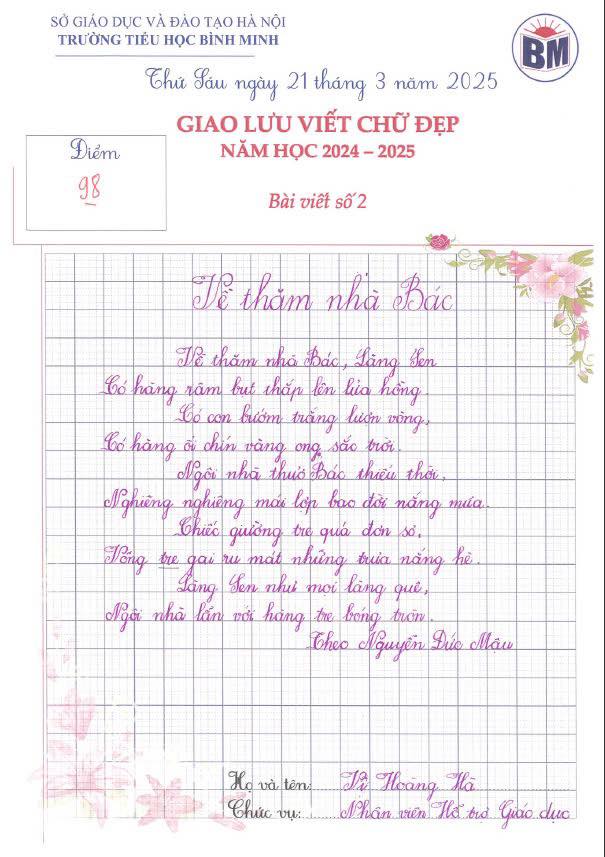 SỞ GIÁO DỤC VÀ ĐÀO TẠO HÀ NỘI
TRƯỜNG TIỂU HỌC BÌNH MINH
BM
Thứ Sáu ngày 21 tháng 3 năm 2025
GIAO LƯU VIẾT CHỮ ĐẸP
NĂM HỌC 2024 – 2025
Điểm
98
Bài viết số 2
Về thăm nhà Bác
Về thăm nhà Bác, Làng Sen
Có hàng râm bụt thắp lên lửa hồng.
Có con bướm trắng lượn vòng,
Có hàng ổi chín vàng ong sắc trời.
Ngôi nhà thuở Bác thiếu thời,
Nghiêng nghiêng mái lợp bao đời nắng mưa.
Chiếc giường tre quá đơn sơ,
Võng tre gai ru mát những trưa nắng hè.
Làng Sen như mọi làng quê,
Ngôi nhà lẩn với hàng tre bóng tròn.
Theo Nguyễn Đức Mậu
Họ và tên: Vi Hoàng Hà
Chức vụ: Nhân viên Hỗ trợ Giáo dục